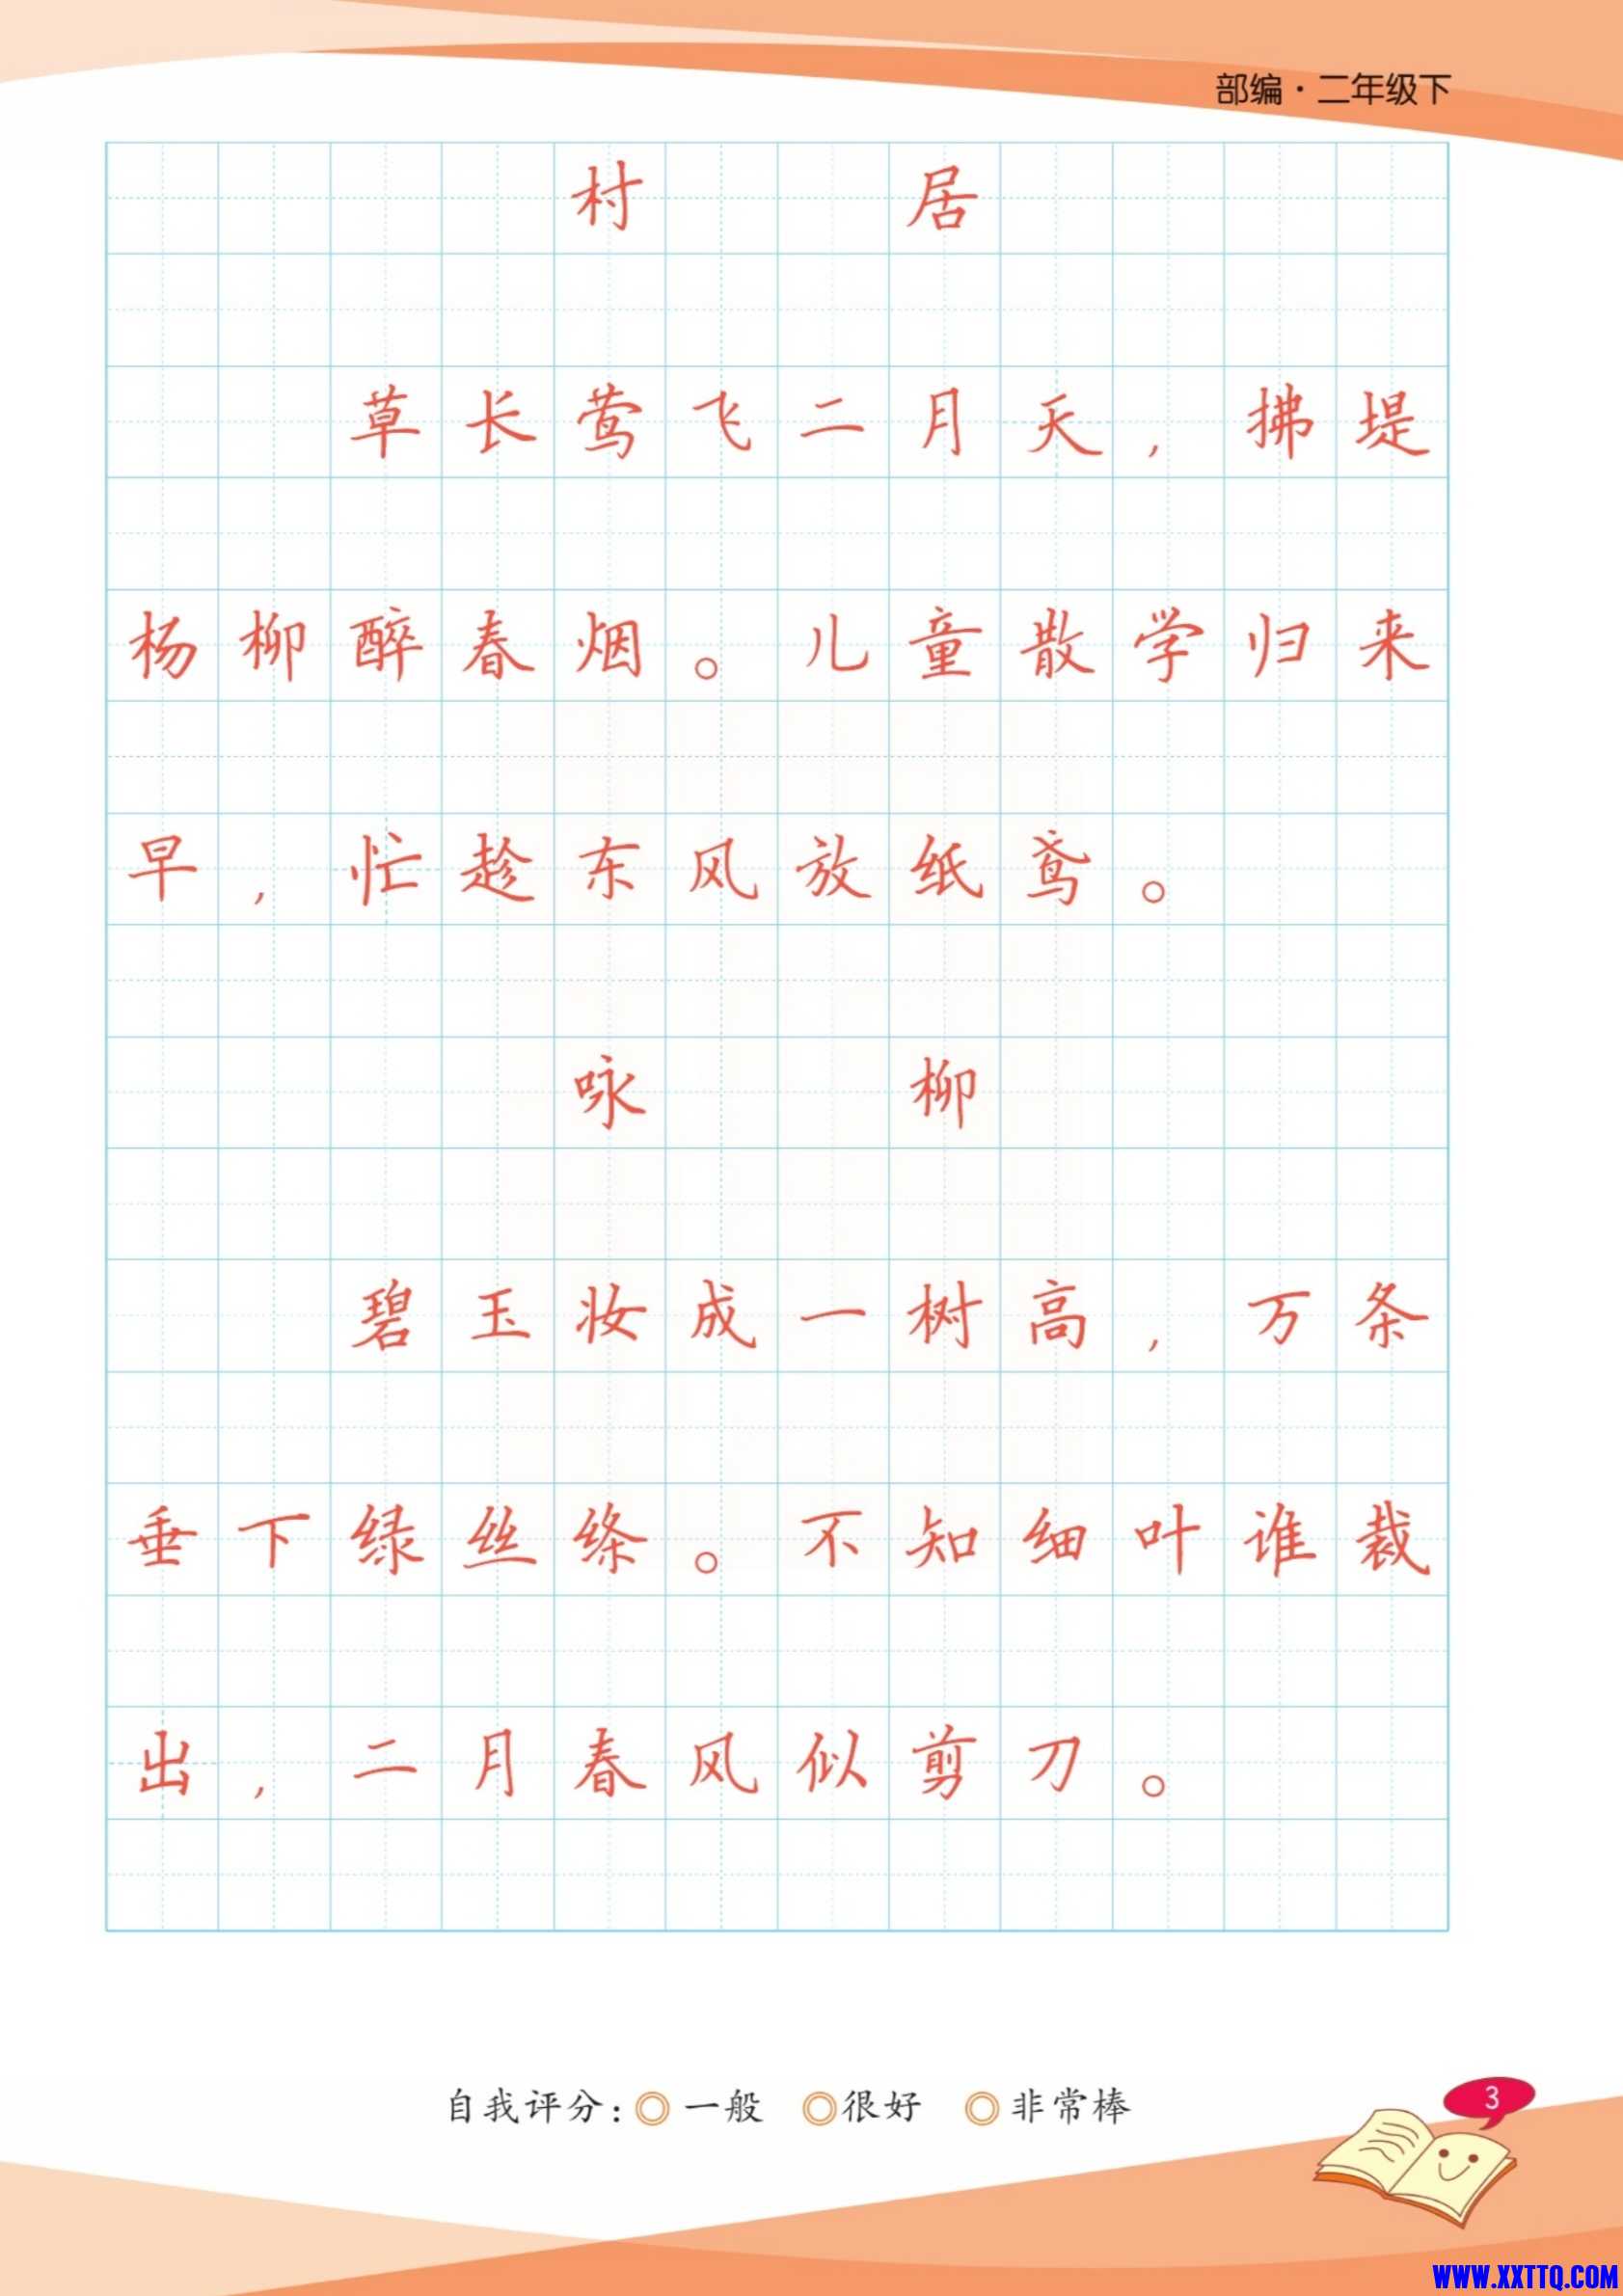 部编·二年级下
村 居
草长莺飞二月天，拂堤
杨柳醉春烟。儿童散学归来
早，忙趁东风放纸鸢。
咏 柳
碧玉妆成一树高，万条
垂下绿丝绦。不知细叶谁裁
出，二月春风似剪刀。
自我评分：◎一般 ◎很好 ◎非常棒
3
WWW.XXTTQ.COM